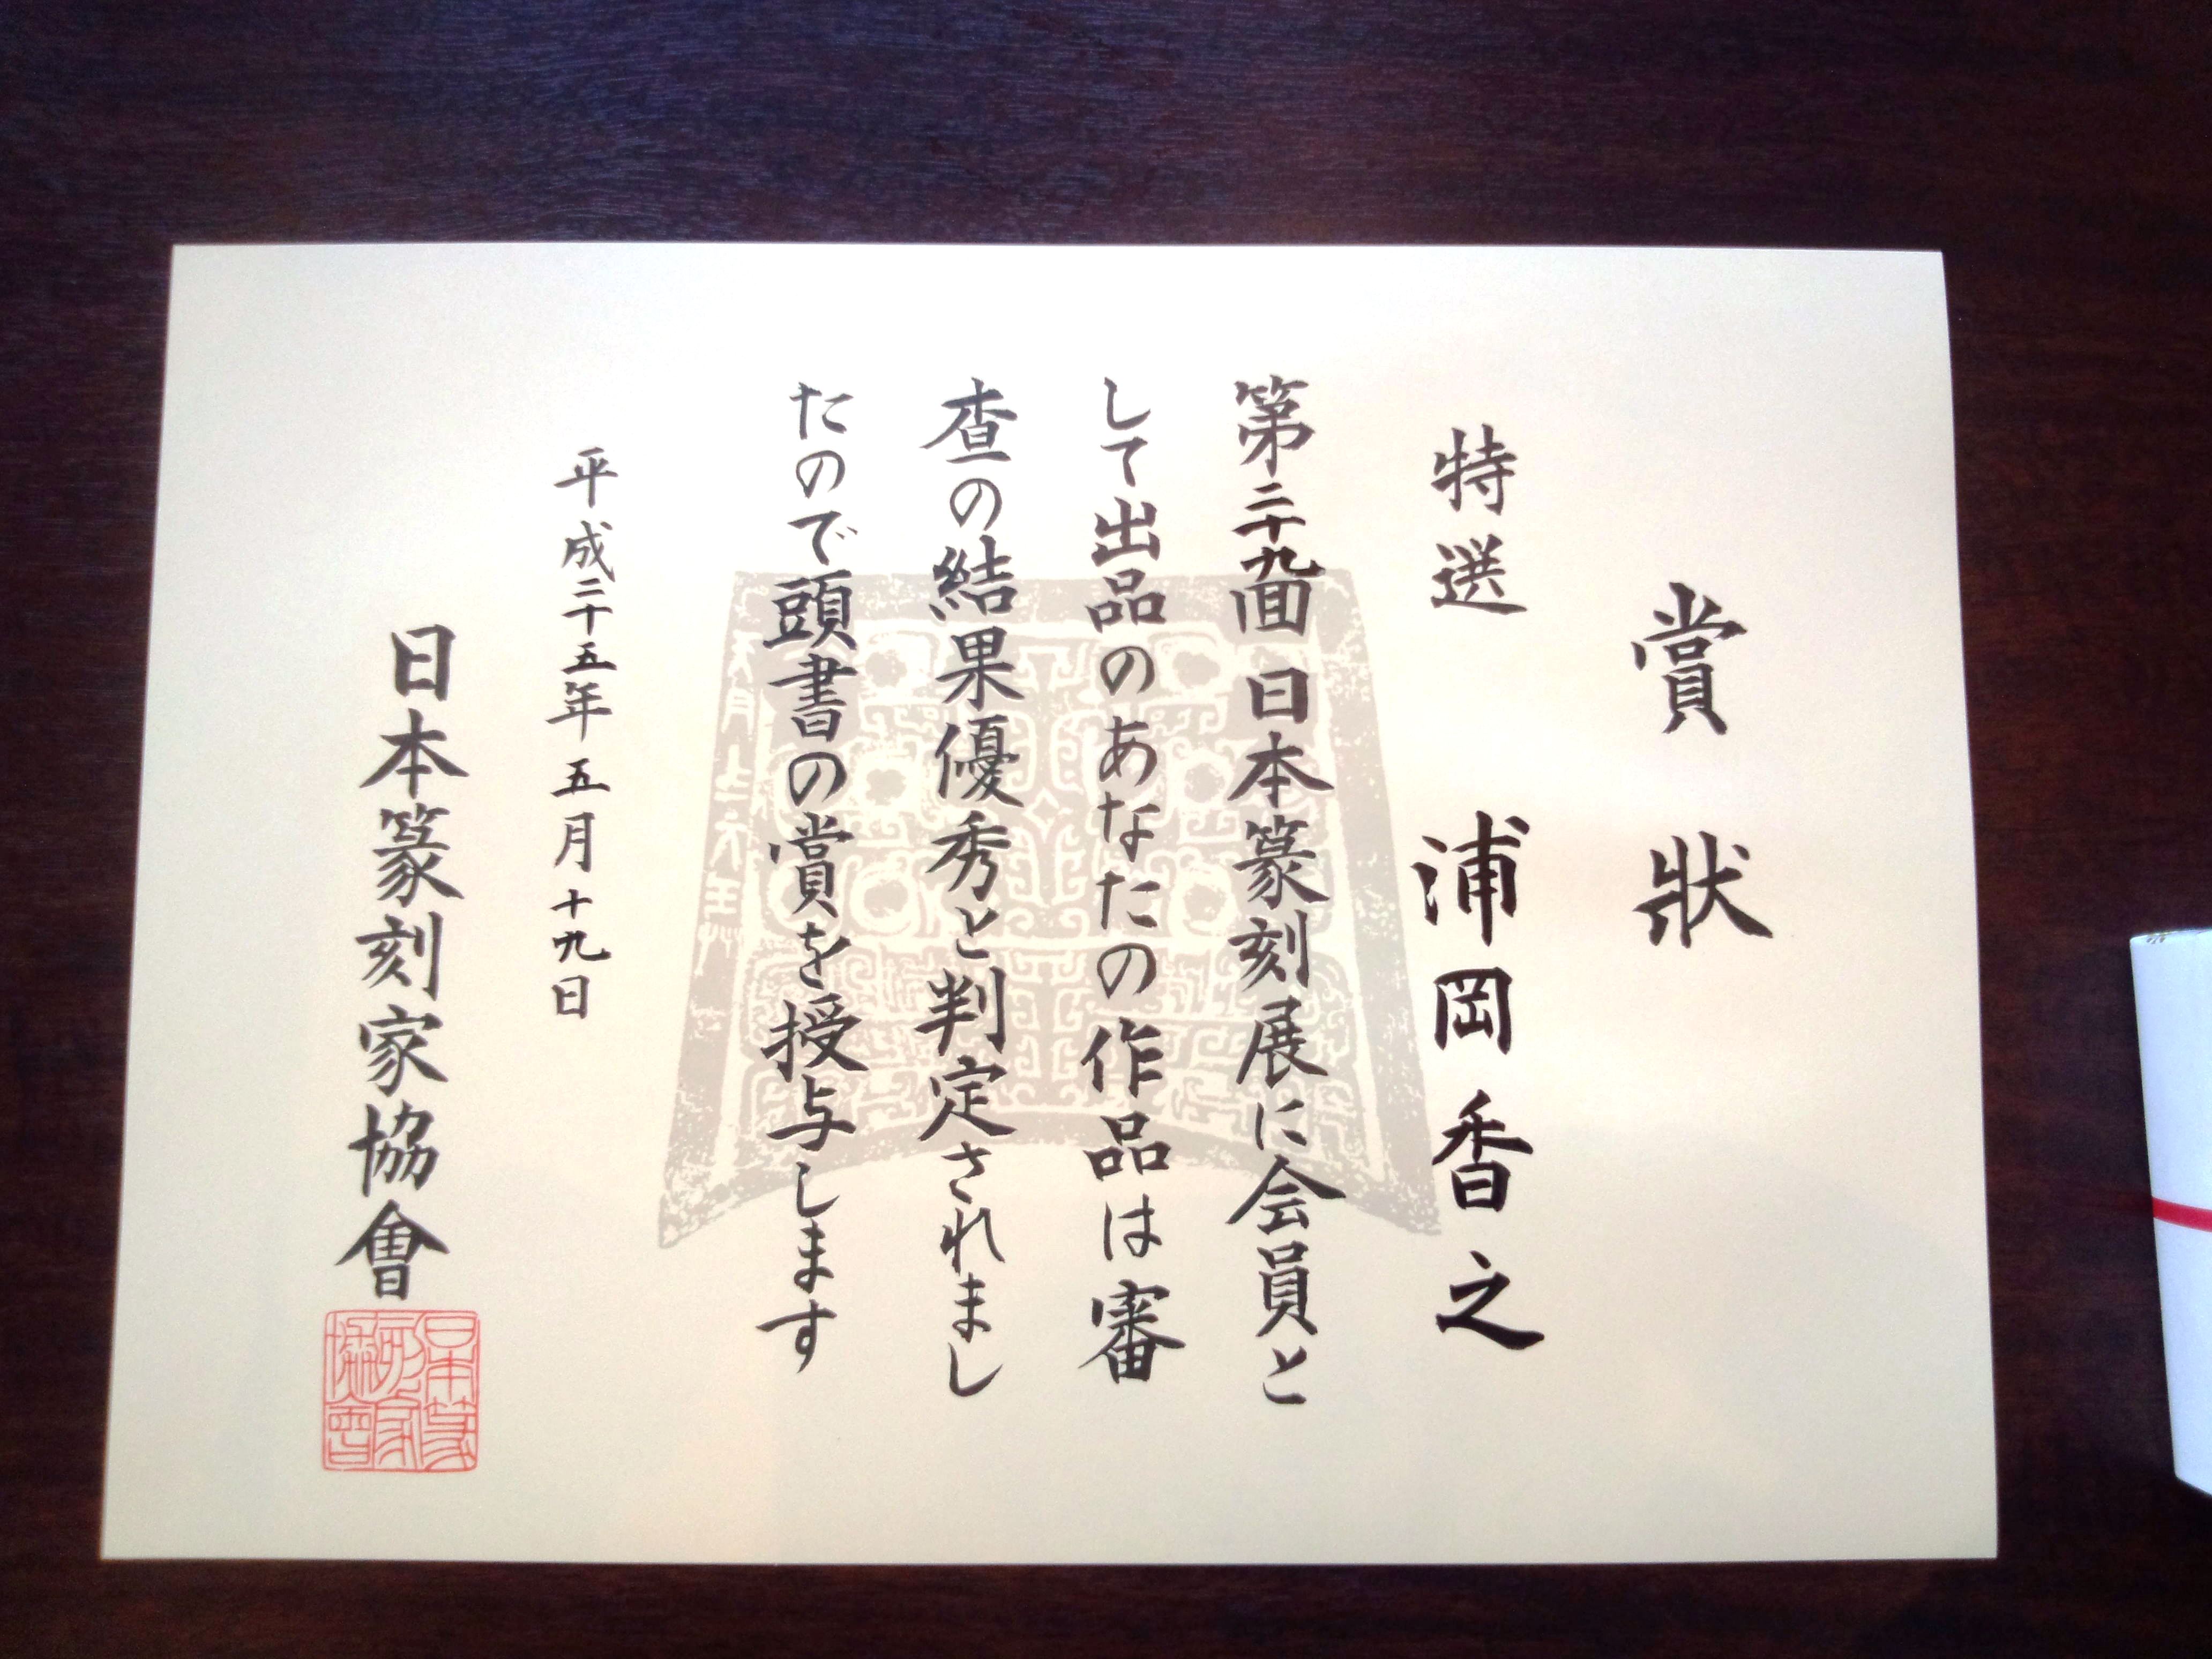 賞狀
特選 浦岡香之
第二十九回日本篆刻展に会員と
して出品のあなたの作品は審
査の結果優秀と判定されまし
たので頭書の賞を授与します
平成二十五年五月十九日
日本篆刻家協會
日本篆刻家協會